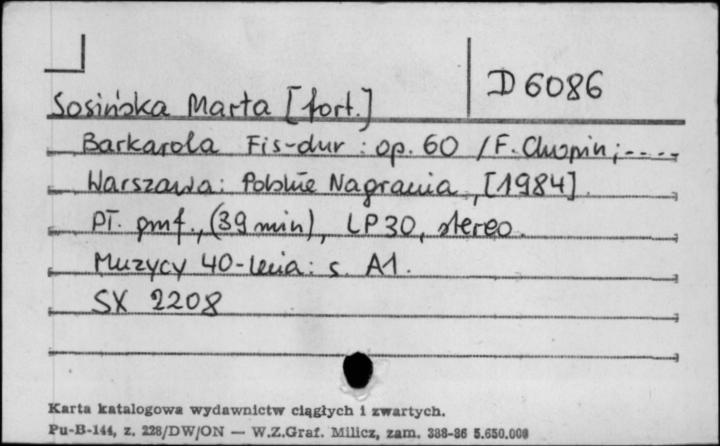 D 6086
Sosińska Marta [fort.]
Barkarola Fis-dur : op. 60 / F. Chopin ; ----
Warszawa : Polskie Nagrania, [1984].
Pł. gmf., (39 min), LP30, stereo.
Muzycy 40-lecia : s. A1.
SX 2208
Karta katalogowa wydawnictw ciągłych i zwartych.
Pu-B-144, z. 228/DW/ON — W.Z.Graf. Milicz, zam. 388-86 5.650.000